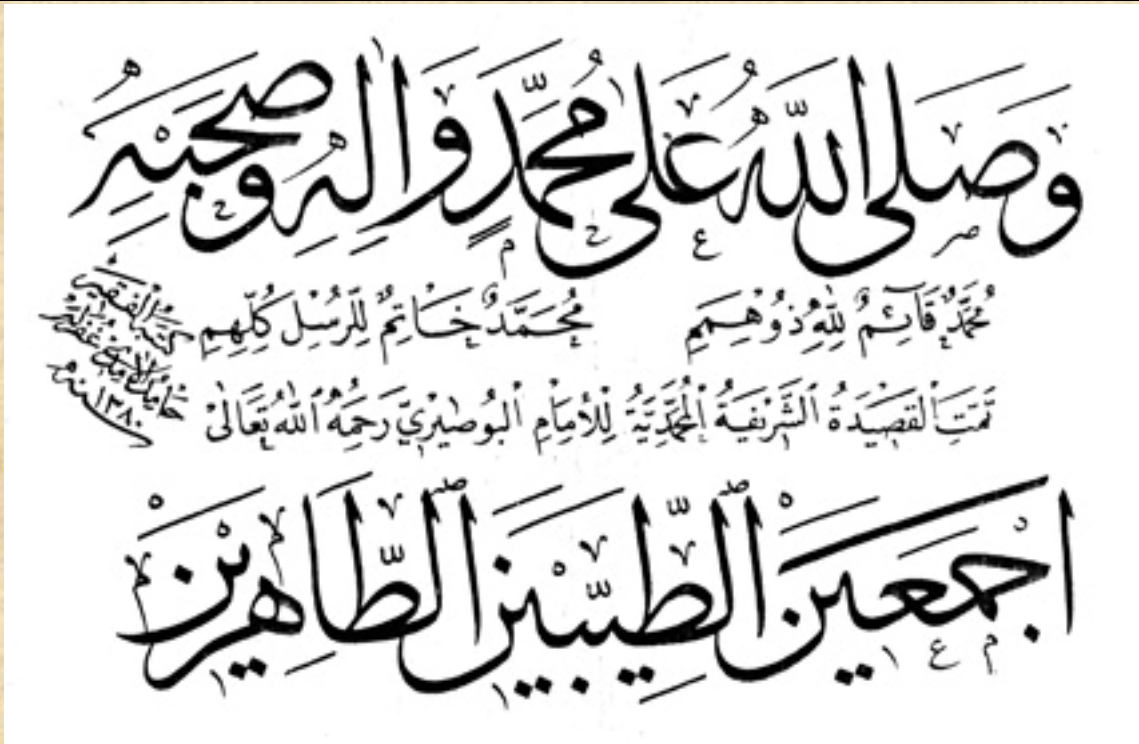 وَصَلَى اللّٰهُ عَلٰى مُحَمَّدٍ وَاٰلِهِ وَصَحْبِهِ
مُحَمَّدٌ قَآئِمٌ لِلّٰهِ ذُو هِمَمِ مُحَمَّدٌ خَاتِمٌ لِلرُّسْلِ كُلِّهِمِ
تَمَّتِ الْقَصِيْدَةُ الشَّرِيْفَةُ الْمُحَمَّدِيَّةُ لِلْاِمَامِ الْبُوصِيْرِيِّ رَحِمَهُ اللّٰهُ تَعَالٰى
كتبه الفقير
حامد الآمدي غفر له
سنة ١٣٨٠
اَجْمَعِيْنَ الطَّيِّبِيْنَ الطَّاهِرِيْنَ